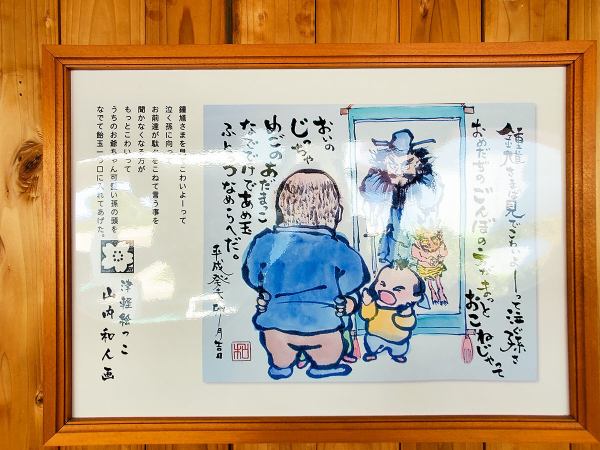 鍾馗さまば見でこわいよーって泣ぐ孫さ
おめだぢのごんぼの
おこねじゃって
おいの
じっちゃ
めごのあだまっこ
なででけであめ玉
ふとづなめらへだ。
平成癸
月吉日
鍾馗さまを見てこわいよーって
泣く孫に向って
お前達が駄々をこねて言う事を
聞かなくなる方が
もっとこわいって
うちのお爺ちゃん可愛い孫の頭を
なでて飴玉一つ口に入れてあげた。
津軽絵っこ
山内和人画